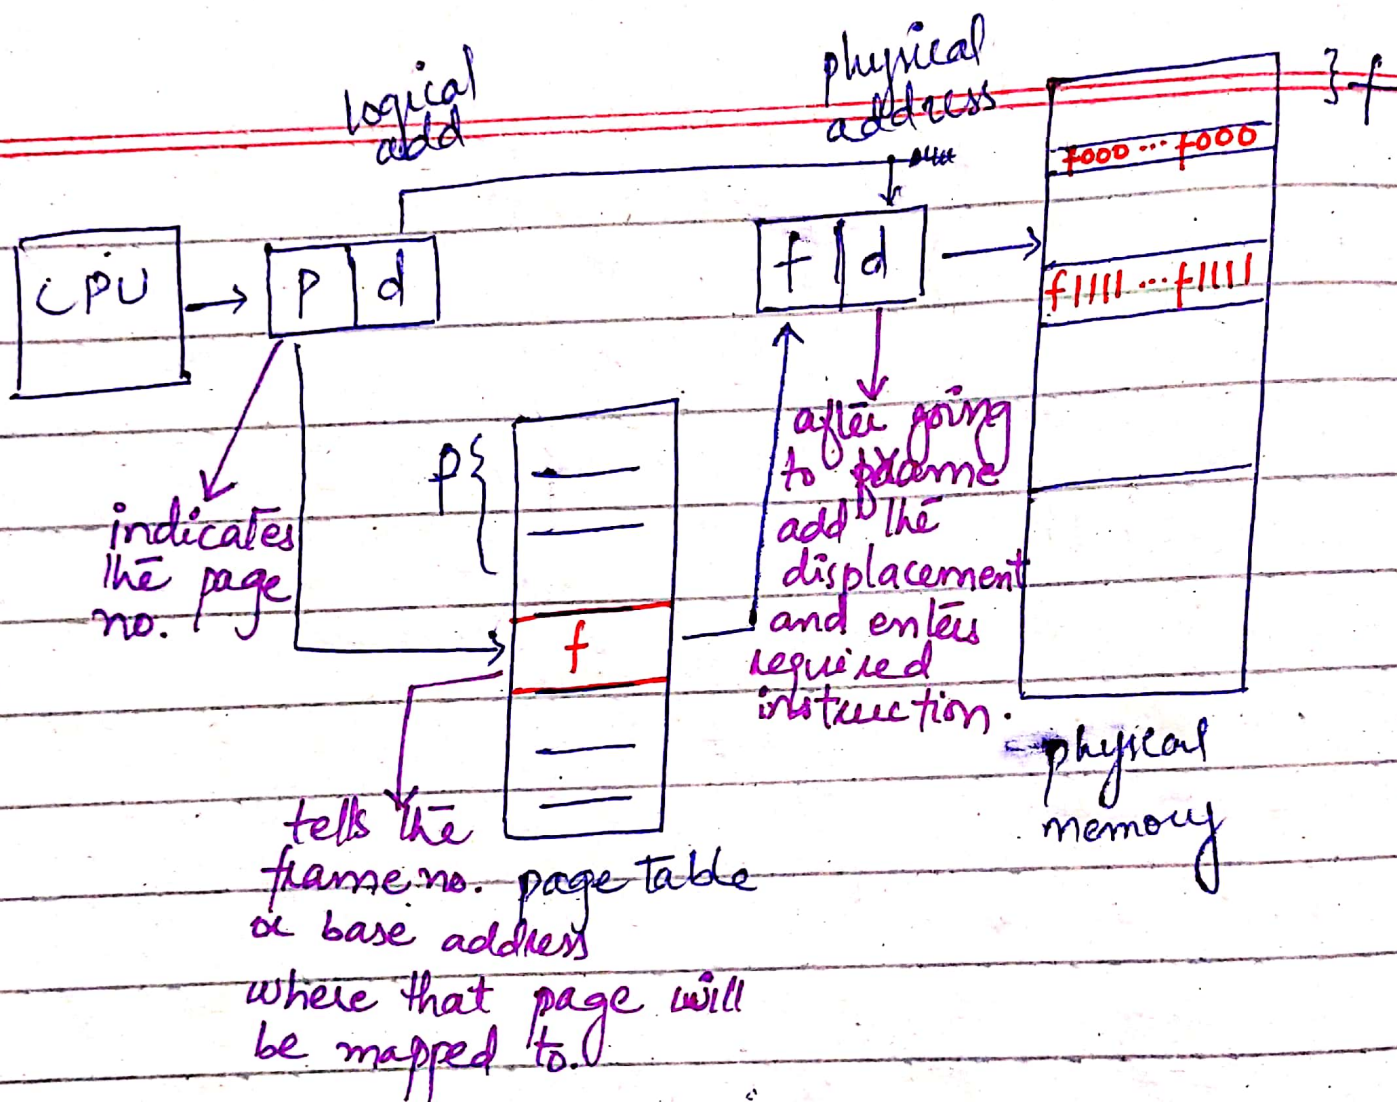 logical
add
physical
address
} f
f000 ... f000
CPU
p d
f d
f1111 ... f1111
indicates
the page
no.
p {
f
after going
to frame
add the
displacement
and enters
required
instruction.
physical
memory
tells the
frame no.
or base address
where that page will
be mapped to.
page table